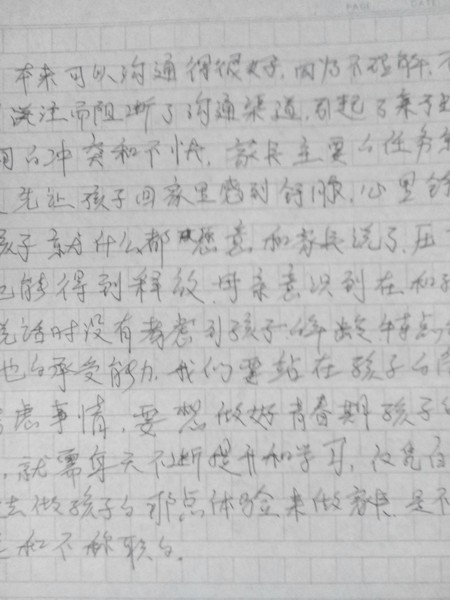 PAGE DATE
本来可以沟通得很好,因为不理解,不
关注而阻断了沟通渠道,引起了亲子之
间的冲突和不快,家长主要的任务
先让孩子回家里感到舒服,心里
孩子就什么都愿意和家长说了,压
也能得到释放,母亲意识到在和孩
说话时没有考虑到孩子的年龄特点
他的承受能力,我们要站在孩子的
考虑事情,要想做好青春期孩子的
,就需每天不断提升和学习,仅凭自
去做孩子的那点体验来做家长,是不
和不称职的.